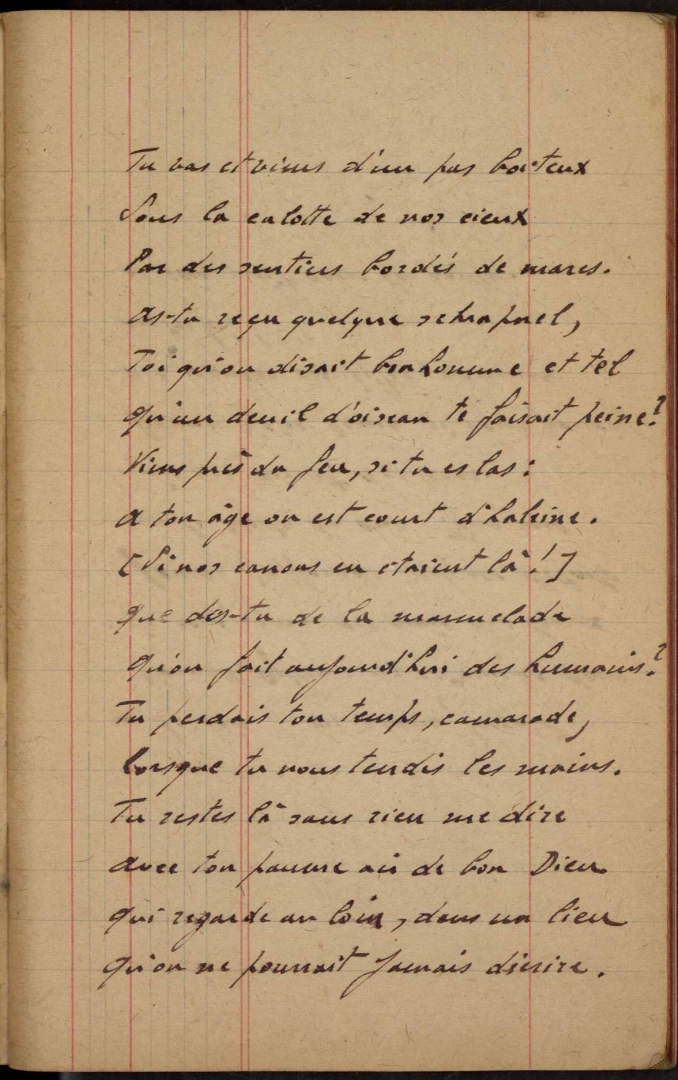 Tu vas et viens d'un pas boiteux
Sous la calotte de nos cieux
Par des sentiers bordés de mares.
As-tu reçu quelque schrapnel,
Toi qu'on disait bonhomme et tel
Qu'un deuil d'oiseau te faisait peine ?
Viens près du feu, si tu es las :
A ton âge on est court d'haleine.
[Si nos canons en étaient là !]
Que dis-tu de la marmelade
Qu'on fait aujourd'hui des humains ?
Tu perdais ton temps, camarade,
Lorsque tu nous tendis les mains.
Tu restes là sans rien me dire
Avec ton pauvre air de bon Dieu
Qui regarde au loin, dans un lieu
Qu'on ne pourrait jamais décrire.